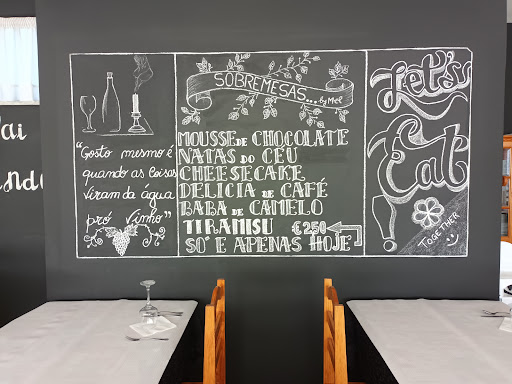 "Gosto mesmo é
quando as Coisas
Viram da água
pró Vinho"
SOBREMESAS...
by Mel
MOUSSE DE CHOCOLATE
NATAS DO CÉU
CHEESECAKE
DELICIA DE CAFÉ
BABA DE CAMELO
TIRAMISU €250
SO' E APENAS HOJE
Let's
Eat
TOGETHER